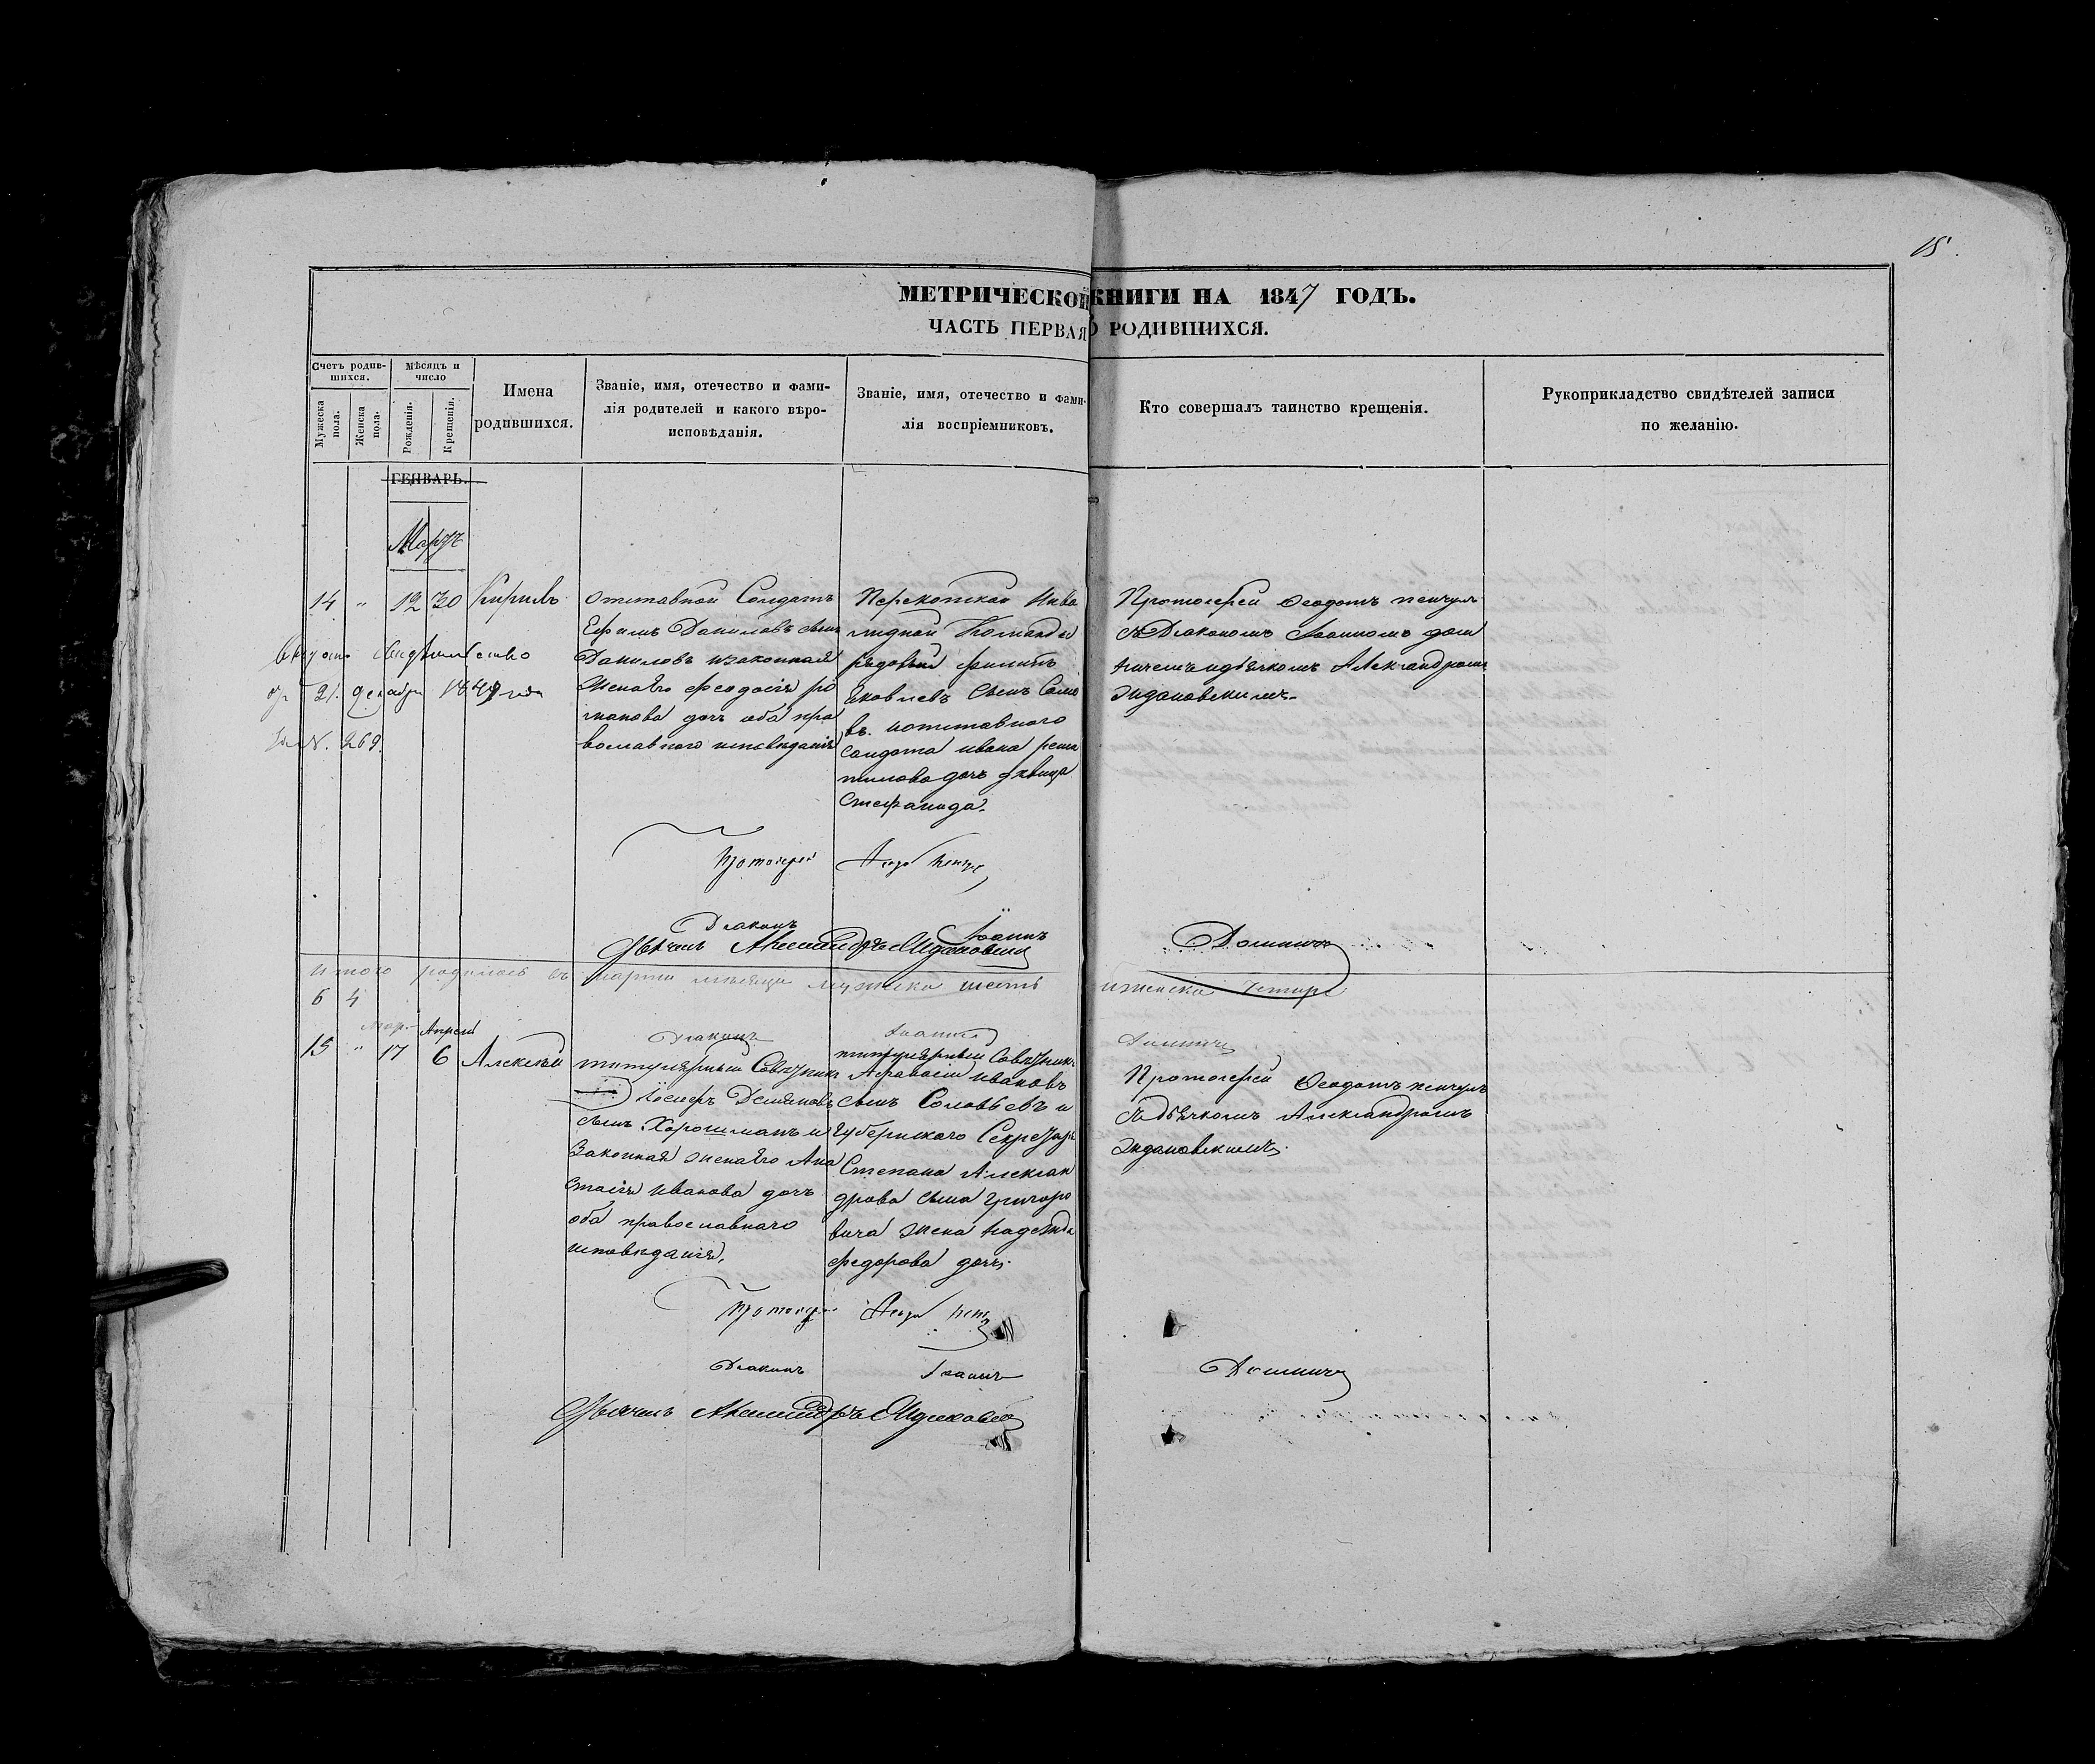 15.
МЕТРИЧЕСКОЙ КНИГИ НА 1847 ГОДЪ.
ЧАСТЬ ПЕРВАЯ О РОДИВШИХСЯ.
Счетъ родив-
шихся.
Мужеска
пола.
Женска
пола.
Мѣсяцъ и
число
Рожденія.
Крещенія.
Имена
родившихся.
Званіе, имя, отечество и фами-
лія родителей и какого вѣро-
исповѣданія.
Званіе, имя, отечество и фами-
лія воспріемниковъ.
Кто совершалъ таинство крещенія.
Рукоприкладство свидѣтелей записи
по желанію.
ГЕНВАРЬ.
Мартъ
14 " 12 30 Кирилъ
свидѣтельство
21. декабря
за N. 269.
отставной Солдатъ
Ефимъ Даниловъ сынъ
Даниловъ изаконная
жена его феодосія
дочь оба пра
вославнаго исповѣданія
Перекопской Инва
лидной Команды
рядовый филипъ
Яковлевъ Сынъ
въ. иотставного
Солдата ивана
дочь дѣвица
Стефанида.
Протоіерей Феодотъ
съ Діакономъ Іоанномъ
идьячкомъ Александромъ
Ждановскимъ.
Протоіерей
Діаконъ Іоаннъ
Дьячекъ Александръ Ждановскій
итого родилось въ марте месяце мужска шесть
иженска четыре
6 4
Мар. Апреля
15 " 17 6 Алексѣй
Діаконъ Іоаннъ
титулярный Совѣтникъ
Іосифъ Демяновъ
сынъ Хорошманъ и
Законная жена его Ана
стасія иванова дочь
оба православнаго
исповѣданія.
титулярный Совѣтникъ
Афанасій ивановъ
сынъ Соловьевъ и
Губернскаго Секретаря
Степана Алексан
дрова сына григоро
вича жена надежда
федорова дочь.
Протоіерей Феодотъ
съ дьячкомъ Александромъ
Ждановскимъ.
Протоіерей
Діаконъ Іоаннъ
Дьячекъ Александръ Ждановскій